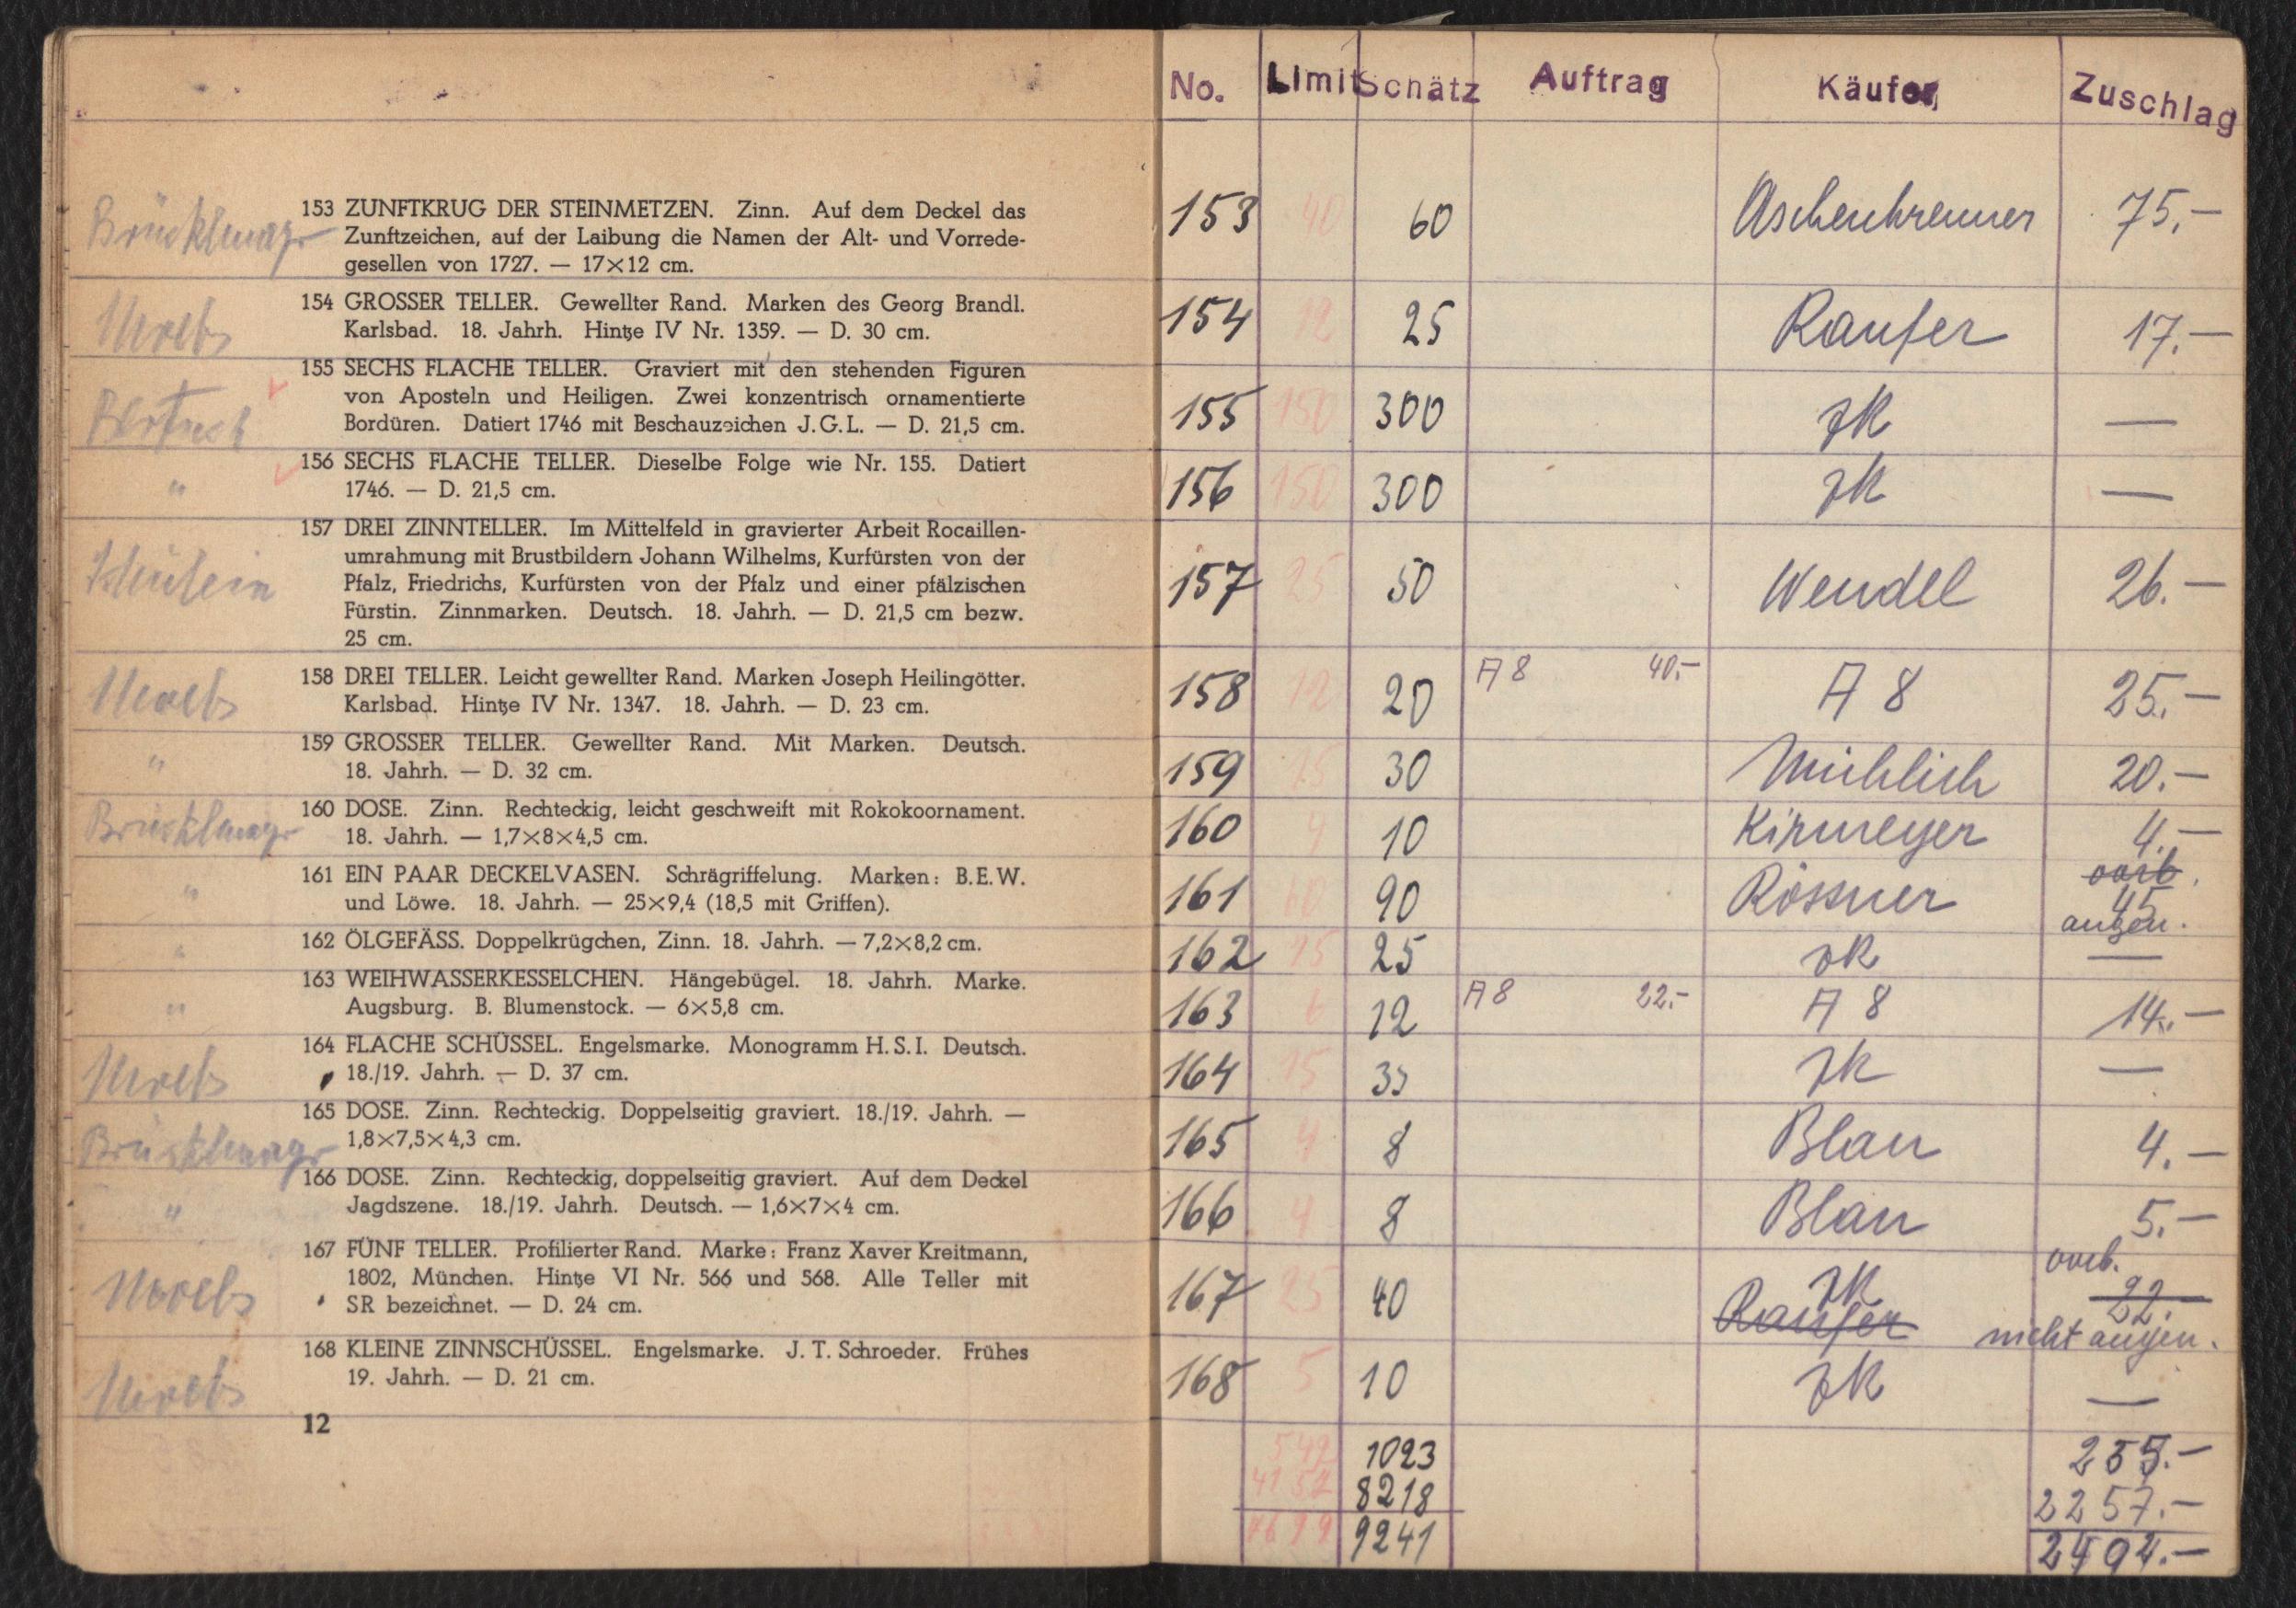 Brücklmayr
153 ZUNFTKRUG DER STEINMETZEN. Zinn. Auf dem Deckel das
Zunftzeichen, auf der Laibung die Namen der Alt- und Vorrede-
gesellen von 1727. — 17×12 cm.
154 GROSSER TELLER. Gewellter Rand. Marken des Georg Brandl.
Karlsbad. 18. Jahrh. Hintze IV Nr. 1359. — D. 30 cm.
155 SECHS FLACHE TELLER. Graviert mit den stehenden Figuren
von Aposteln und Heiligen. Zwei konzentrisch ornamentierte
Bordüren. Datiert 1746 mit Beschauzeichen J.G.L. — D. 21,5 cm.
"
156 SECHS FLACHE TELLER. Dieselbe Folge wie Nr. 155. Datiert
1746. — D. 21,5 cm.
157 DREI ZINNTELLER. Im Mittelfeld in gravierter Arbeit Rocaillen-
umrahmung mit Brustbildern Johann Wilhelms, Kurfürsten von der
Pfalz, Friedrichs, Kurfürsten von der Pfalz und einer pfälzischen
Fürstin. Zinnmarken. Deutsch. 18. Jahrh. — D. 21,5 cm bezw.
25 cm.
158 DREI TELLER. Leicht gewellter Rand. Marken Joseph Heilingötter.
Karlsbad. Hintze IV Nr. 1347. 18. Jahrh. — D. 23 cm.
"
159 GROSSER TELLER. Gewellter Rand. Mit Marken. Deutsch.
18. Jahrh. — D. 32 cm.
Brücklmayr
160 DOSE. Zinn. Rechteckig, leicht geschweift mit Rokokoornament.
18. Jahrh. — 1,7×8×4,5 cm.
"
161 EIN PAAR DECKELVASEN. Schrägriffelung. Marken: B.E.W.
und Löwe. 18. Jahrh. — 25×9,4 (18,5 mit Griffen).
"
162 ÖLGEFÄSS. Doppelkrügchen, Zinn. 18. Jahrh. — 7,2×8,2 cm.
"
163 WEIHWASSERKESSELCHEN. Hängebügel. 18. Jahrh. Marke.
Augsburg. B. Blumenstock. — 6×5,8 cm.
164 FLACHE SCHÜSSEL. Engelsmarke. Monogramm H.S.I. Deutsch.
18./19. Jahrh. — D. 37 cm.
Brücklmayr
165 DOSE. Zinn. Rechteckig. Doppelseitig graviert. 18./19. Jahrh. —
1,8×7,5×4,3 cm.
"
166 DOSE. Zinn. Rechteckig, doppelseitig graviert. Auf dem Deckel
Jagdszene. 18./19. Jahrh. Deutsch. — 1,6×7×4 cm.
167 FÜNF TELLER. Profilierter Rand. Marke: Franz Xaver Kreitmann,
1802, München. Hintze VI Nr. 566 und 568. Alle Teller mit
SR bezeichnet. — D. 24 cm.
168 KLEINE ZINNSCHÜSSEL. Engelsmarke. J. T. Schroeder. Frühes
19. Jahrh. — D. 21 cm.
12
No. Limit Schätz Auftrag Käufer Zuschlag
153 40 60 Aschenbrenner 75.—
154 12 25 Raufer 17.—
155 150 300 zk —
156 150 300 zk —
157 25 50 Wendel 26.—
158 12 20 A 8 40.- A 8 25.—
159 15 30 Michlich 20.—
160 4 10 Kirmeyer 4.—
161 60 90 Rössner vorb. 45
angen.
162 15 25 zk —
163 6 12 A 8 22.- A 8 14.—
164 15 35 zk —
165 4 8 Blau 4.—
166 4 8 Blau 5.—
vorb.
167 25 40 zk 22.-
Raufer nicht angen.
168 5 10 zk —
1023 235.—
8218 2257.—
9241 2492.—